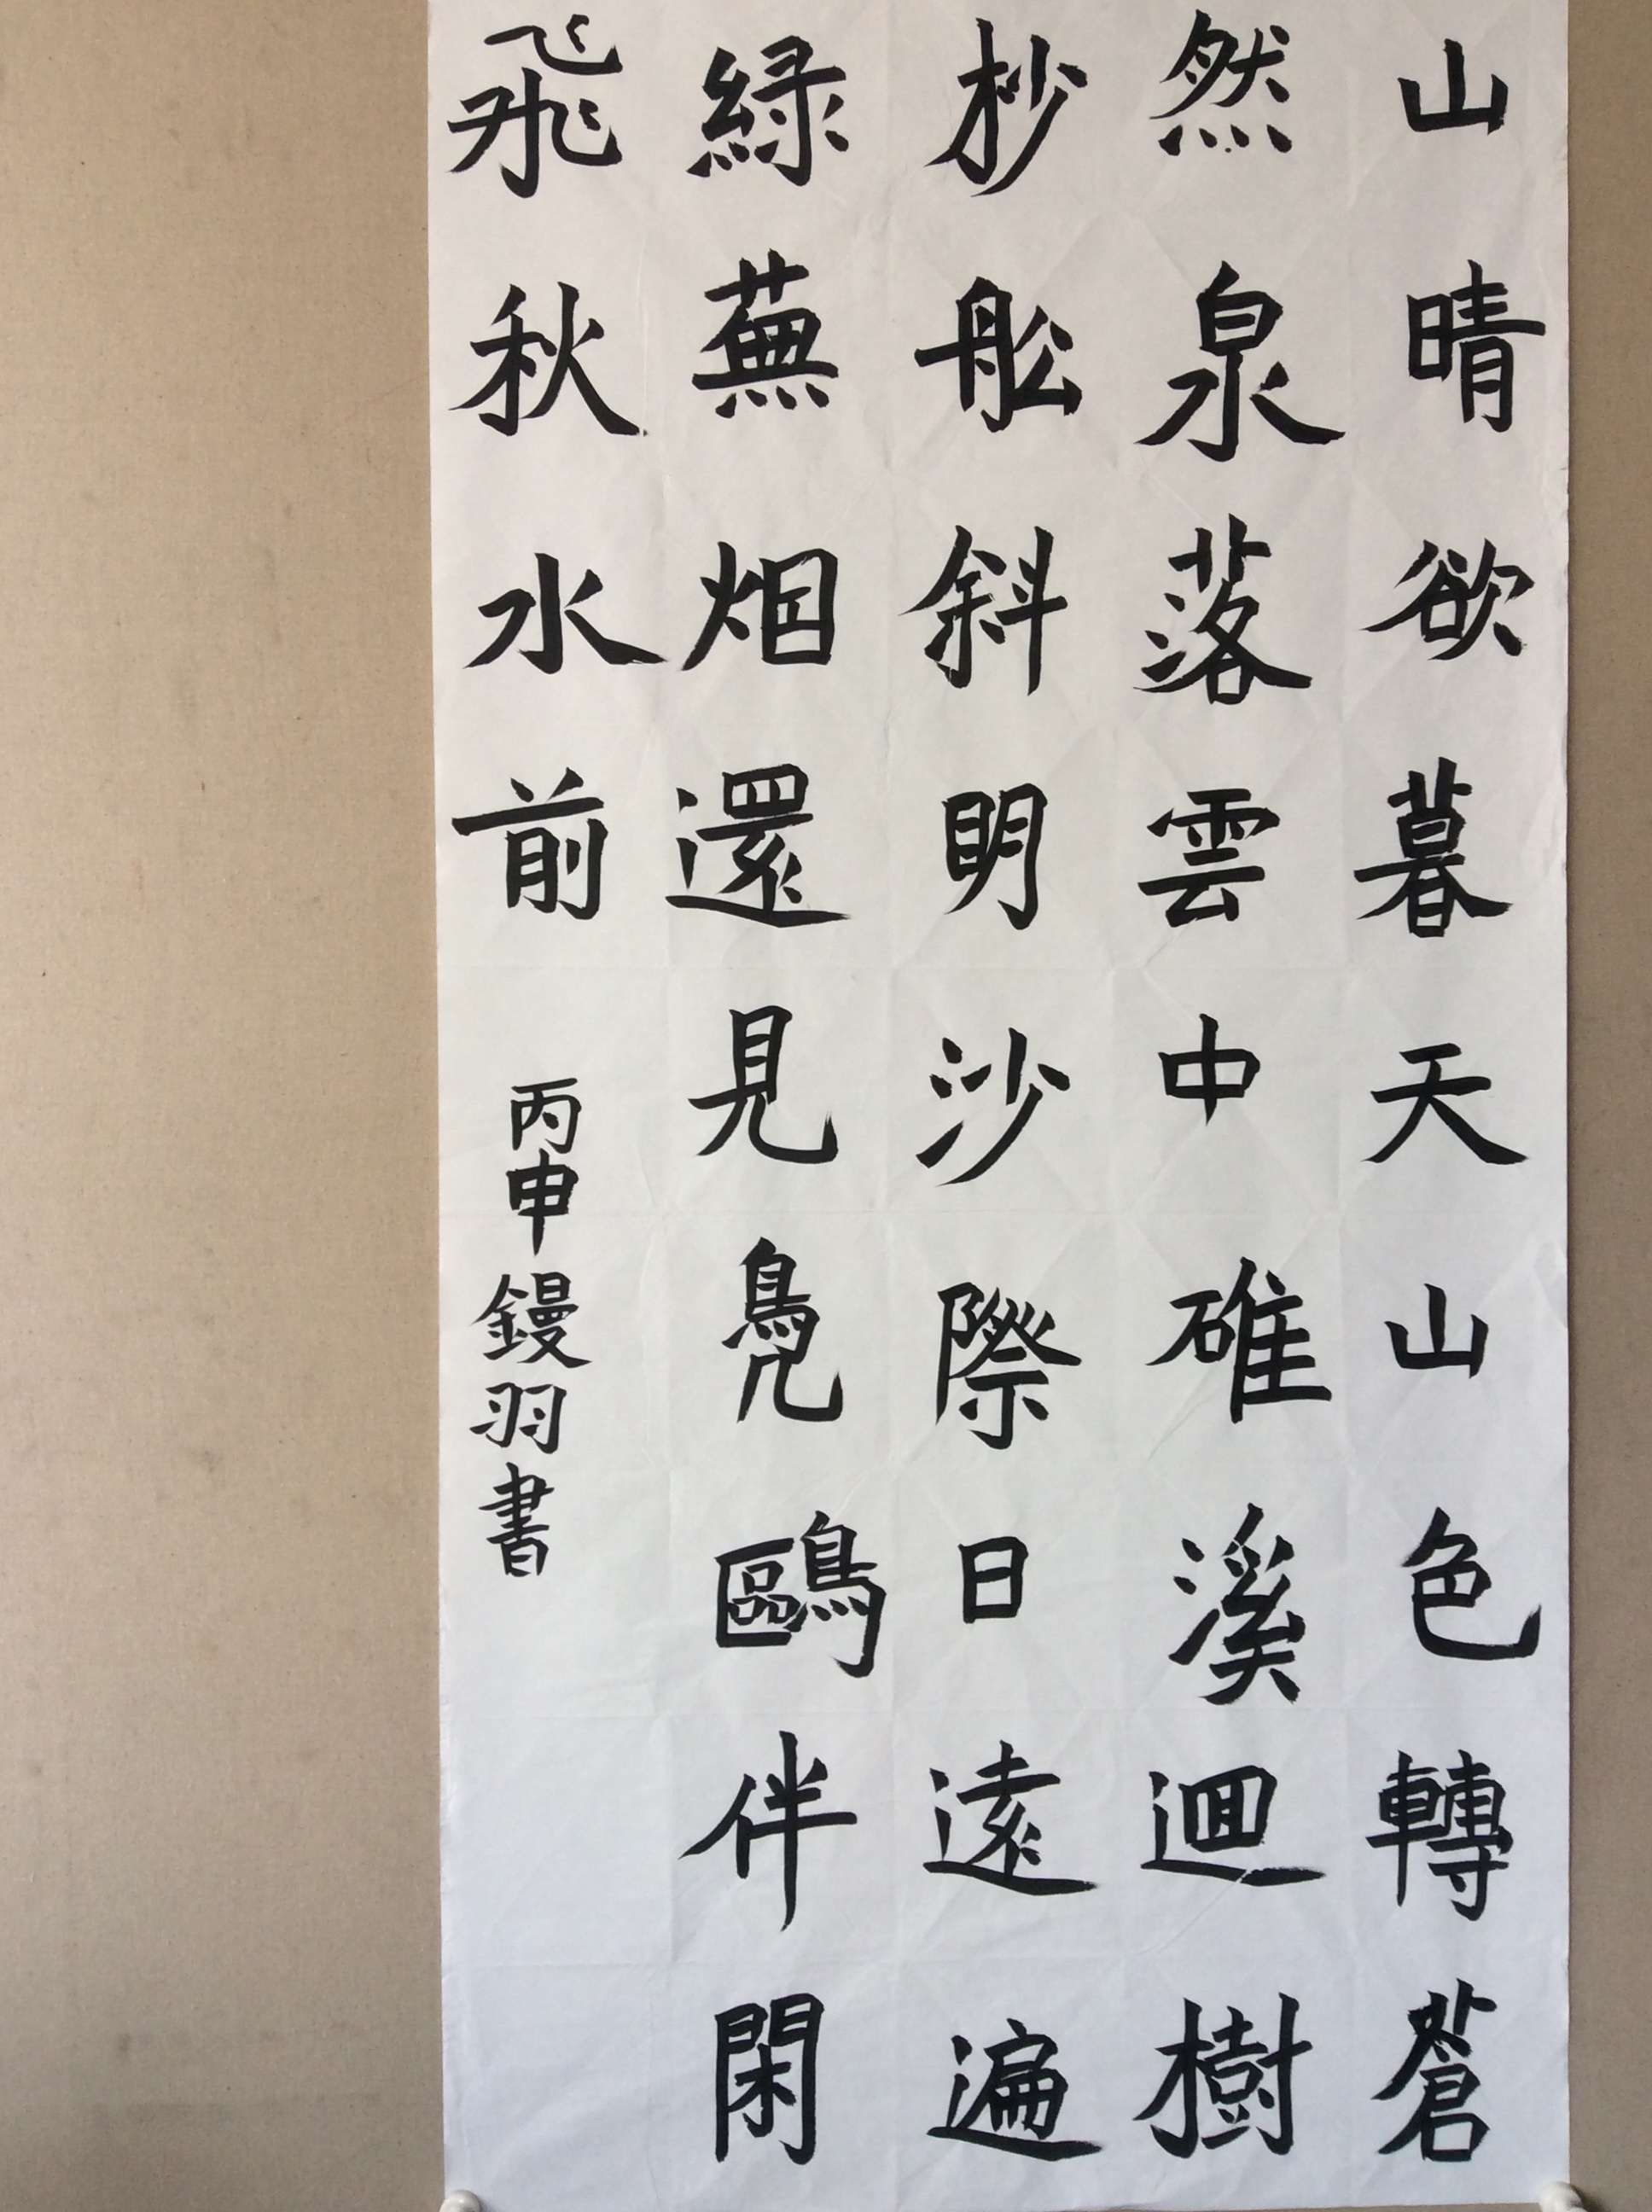 山晴欲暮天山色轉蒼
然泉落雲中碓溪迴樹
杪舩斜明沙際日遠遍
緑蕪烟還見鳧鷗伴閑
飛秋水前
丙申鏝羽書